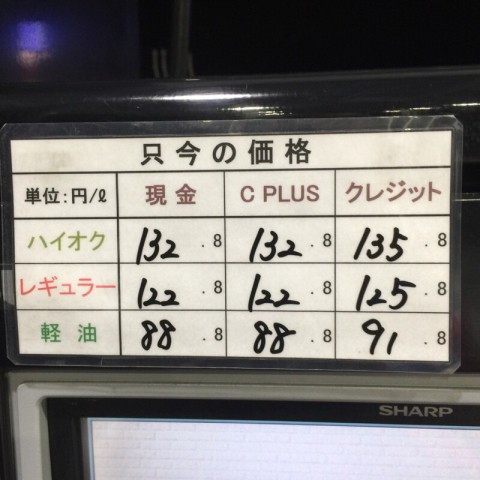 只今の価格
単位:円/ℓ 現金 C PLUS クレジット
ハイオク 132.8 132.8 135.8
レギュラー 122.8 122.8 125.8
軽油 88.8 88.8 91.8
SHARP